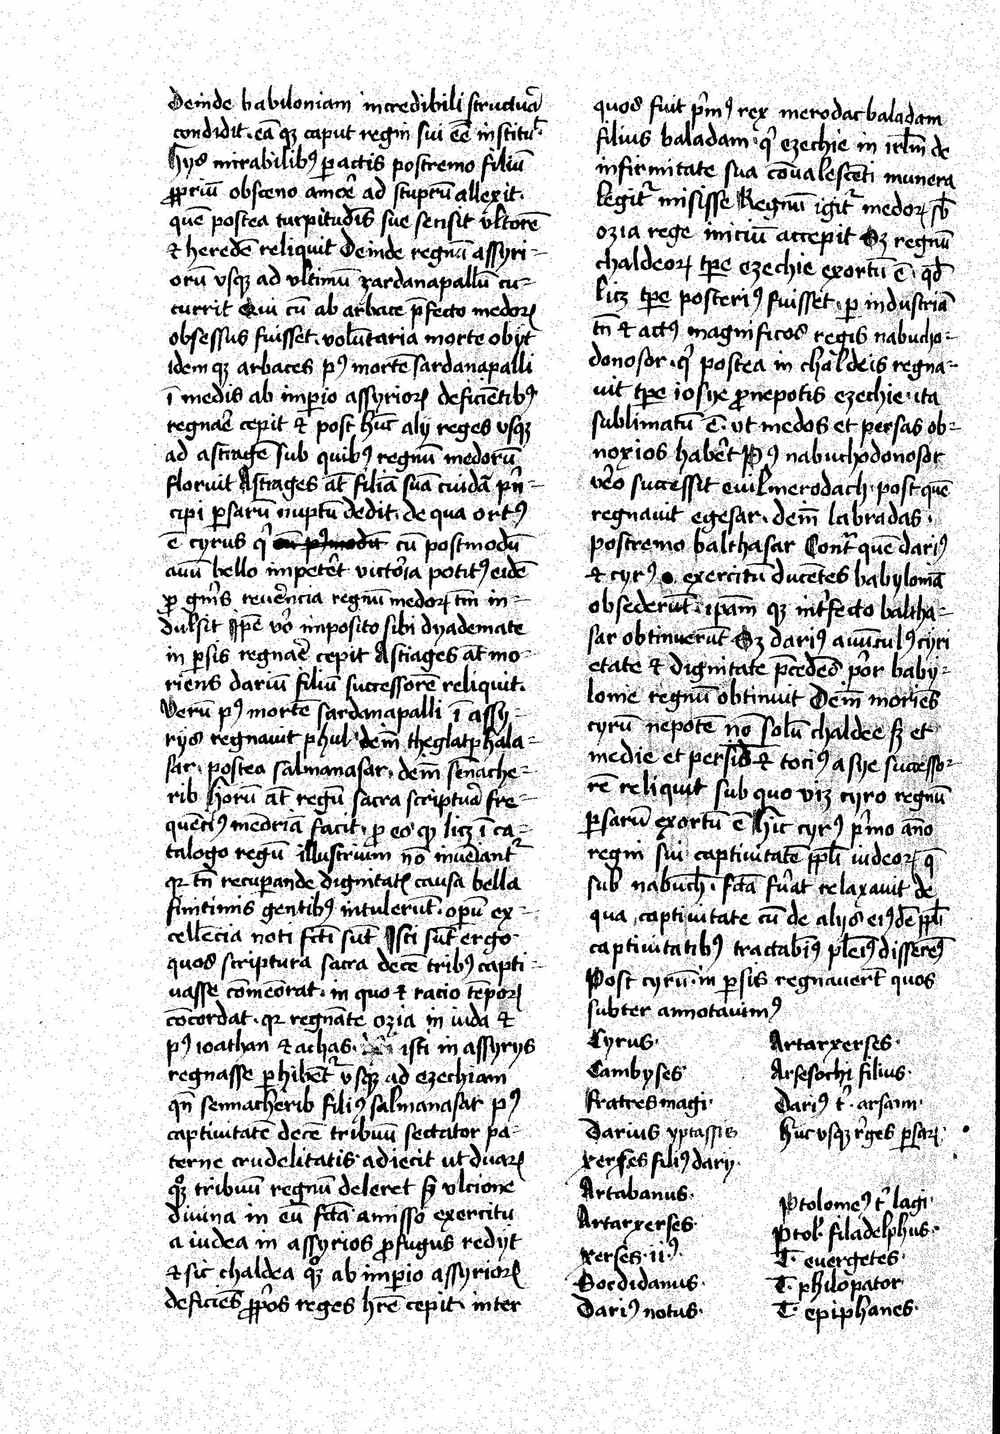 Deinde babiloniam incredibili structuā
condidit · eā qꝫ caput regni sui eē institu͛
Hijs mirabilibꝰ ꝑactis postremo filiū
ꝓpriū obsceno amoē ad stuprū allexit ·
quē postea turpitudīs sue sensit vltorē
⁊ heredē reliquit Deinde regnū assyri-
orū vsqꝫ ad vltimū zardanapallū cu-
currit Qui cū ab arbace p̄fecto medoꝝ
obsessus fuisset · volūtaria morte obijt
idem qꝫ arbaces pꝰ mortē sardanapalli
ī medis ab imꝑio assyrioꝝ deficiētibꝰ
regnaē cepit ⁊ post hūc alij reges vsqꝫ
ad astiagē sub quibꝰ regnū medorū
floruit Astiages at̄ filiā suā cuidā pⁱn-
cipi ꝑsarū nuptū dedit · de qua ortꝰ
ē cyrus qⁱ cū postmodū
auū bello impetēt victoria potitꝰ eidē
ꝓ gn̄is reuēencia regnū medoꝝ tm̄ in-
dulsit Ip̄e vo imposito sibi dyademate
in ꝑsis regnaē cepit Astiages at̄ mo-
riens dariū filiū successorē reliquit ·
Verū pꝰ mortē sardanapalli ī assy-
rijs regnauit phul dem̄ theglatphala-
sar · postea salmanasar · dem̄ sēnache-
rib Horū at̄ regū sacra scriptuā fre-
quētiꝰ mēoriā facit · ꝓ eo qꝫ licꝫ ī ca-
talogo regū illustrium nō inueniantᷣ
qꝛ tn̄ recuꝑande dignitatꝭ causa bella
finitimis gentibꝰ intulerūt · opū ex-
cellēcia noti fc̄ti sūt Isti sūt ergo
quos scriptura sacra decē tribꝰ capti-
uasse cōmēorat · in quo ⁊ racio tēpoꝝ
cōcordat · qꝛ regnāte ozia in iuda ⁊
pꝰ ioathan ⁊ achas · isti in assyrijs
regnasse ꝑhibētᷣ vsqꝫ ad ezechiam
qn̄ sennacherib filiꝰ salmanasar pꝰ
captiuitatē decē tribuū sectator pa-
terne crudelitatis adiecit ut duaꝝ
qꝫ tribuū regnū deleret sꝫ vlcione
diuina in eū fc̄ta amisso exercitu
a iudea in assyrios ꝓfugus redijt
⁊ sic chaldea qꝫ ab imꝑio assyrioꝝ
deficiēs ꝓprios reges hr̄e cepit · inter
quos fuit pⁱmꝰ rex merodac baladam
filius baladam · qⁱ ezechie in irl̄m de
infirmitate sua cōualescēti munera
legitᷣ misisse Regnū igitᷣ medoꝝ sb̄
ozia rege iniciū accepit Qꝫ regnū
chaldeoꝝ tp̄e ezechie exortū ē · qd̄
licꝫ tp̄e posteriꝰ fuisset · ꝑ industriā
tn̄ ⁊ actꝰ magnificos regis nabucho-
donosor · qⁱ postea in chaldeis regna-
uit tp̄e iosije ꝓnepotis ezechie · ita
sublimatū ē · ut medos et persas ob-
noxios habēt Pꝰ nabuchodonosor
vēo successit euilmerodach · post quē
regnauit egesar · dein̄ labradas ·
postremo balthasar Contᷓ quē dariꝰ
⁊ cyrꝰ exercitū ducētes babyloniā
obsederūt · ipam qꝫ int̄fecto baltha-
sar obtinuerūt Qꝫ dariꝰ auūculꝰ cyri
etate ⁊ dignitate p̄cedēs pⁱor baby-
lonie regnū obtinuit Dein̄ moriēs
cyrū nepotē nō solū chaldee sꝫ et
medie et persidꝭ ⁊ tociꝰ asye successo-
rē reliquit sub quo viꝫ cyro regnū
ꝑsarū exortū ē Hic cyrꝰ pⁱmo ano
regni sui captiuitatē ppl̄i iudeoꝝ q̄
sub nabuch̄ · fc̄ta fūat relaxauit de
qua captiuitate cū de alijs eiꝰdē ppl̄i
captiuitatibꝰ tractabimꝰ pleniꝰ disserēꝰ
Post cyrū in ꝑsis regnauert̄ quos
subter annotauimꝰ
Cyrus ·
Cambyses ·
Fratres magi ·
Darius yptassis
xerses filiꝰ darij ·
Artabanus ·
Artarxerses ·
xerses · ii ꝰ ·
Socdidanus ·
Dariꝰ notus ·
Artarxerses ·
Arsesochi filius ·
Dariꝰ tⁱ · arsam ·
Huc vsqꝫ reges ꝑsaꝝ ·
Ptolomeꝰ tⁱ lagi ·
Ptol · filadelphus ·
T · euergetes ·
T · philopator
T · epiphanes ·